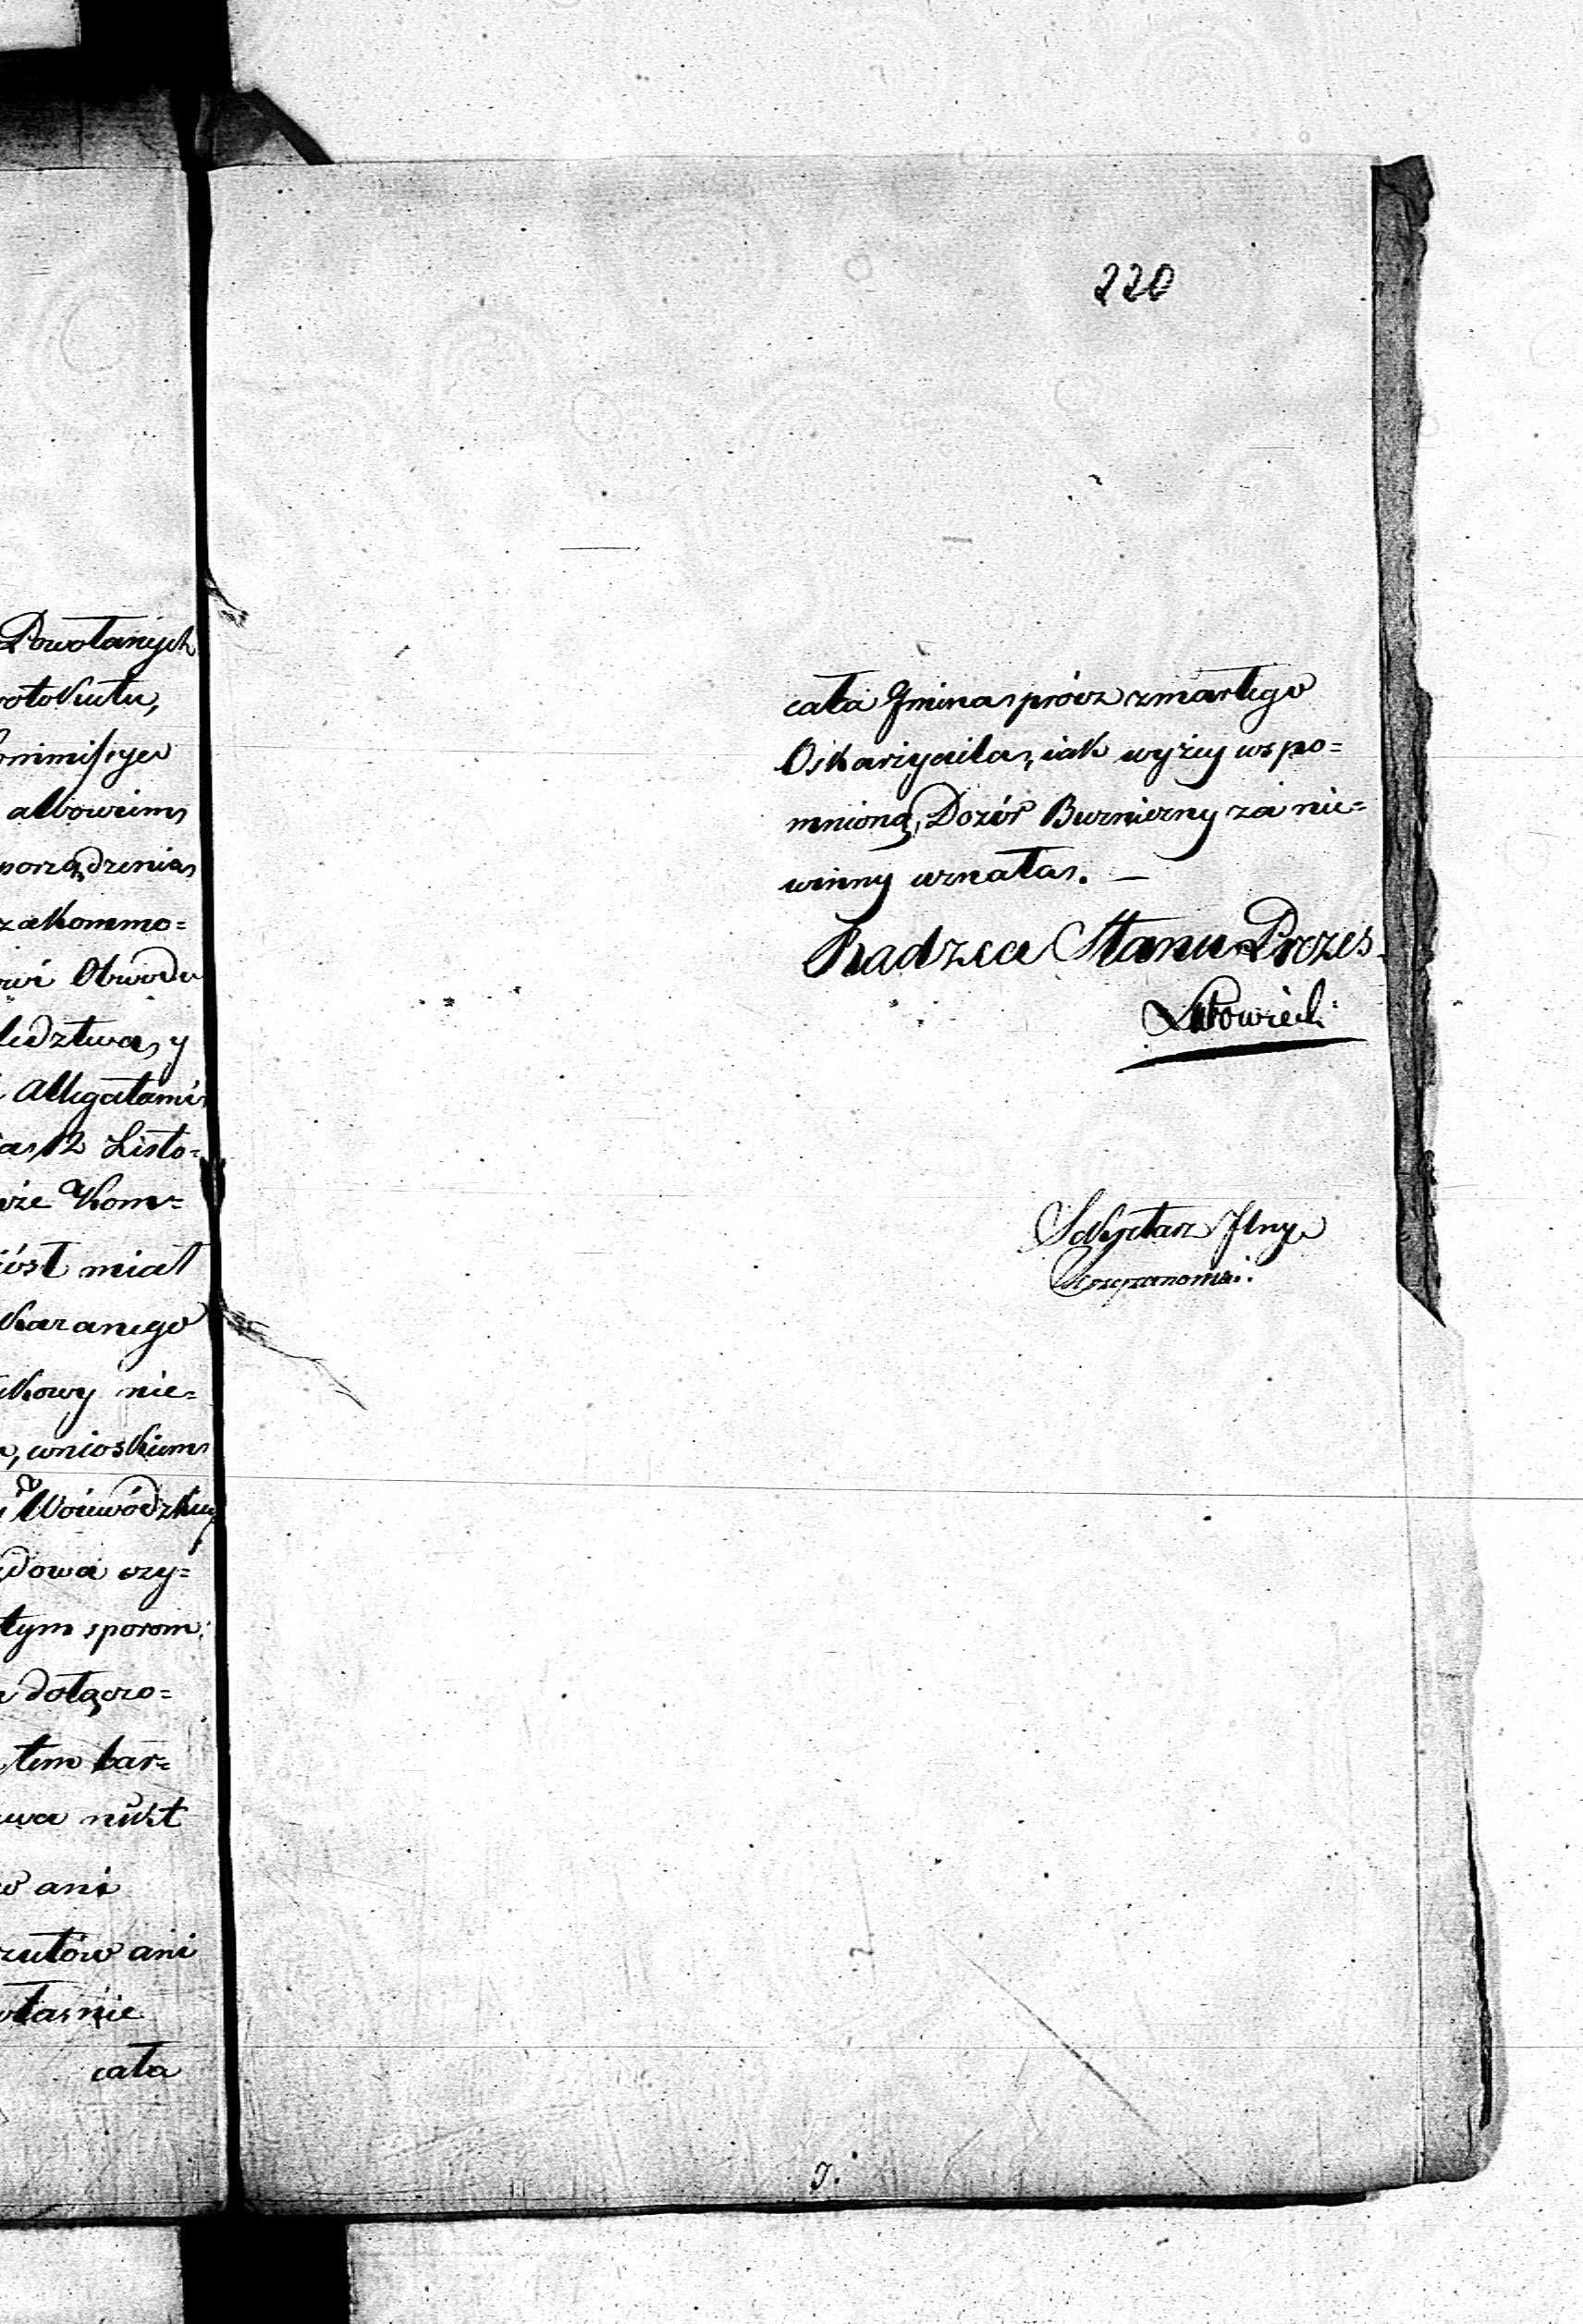 Powołanych
otokułu,
ommissyя
albowiem
porządzenia
zakommo=
owi Obwodu
ledztwa, y
Allegatami
12 Listo=
że Kom=
iósł miał
karanego
kowy nie=
wnioskiem
Woiewódzkiey
dowa czy=
tym sporom
dołączo=
tem bar=
wa nikt
ani
zutów ani
własnie
cała
220
cała Gmina prócz zmarłego
Oskarżyciela, iak wyżey wspo=
mniono, Dozór Bużniczny za nie=
winny uznała. —
Radzca Stanu Prezes
Sekretarz Jlny